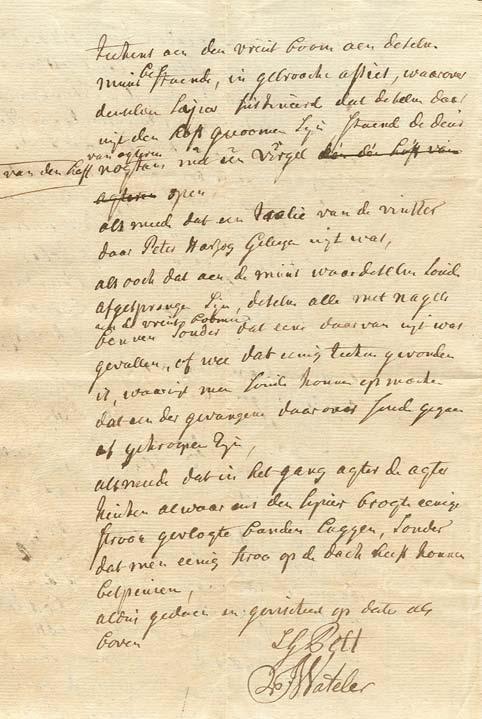 teekens aen den vrient boom aen deselve
muur bestaende, in gebroocke, waarover
denselven Sipier dat deselve daar
uijt den genoomen Sijn, staende de deur
van den
van agteren
nogtans met een vergel
agteren open
als meede dat een tralie van de vinster
daar Peter Harzog Gelegen uijt was,
als ook dat aen de muur waar deselve Soude
afgesprongen Sijn, deselve alle met nagels
aen de
benne sonder dat eene daar van uijt was
gevallen, of wee dat eenig teeken gevonden
is, waar uijt men Soude konnen opmaken
dat een der gevangene daar over Soud gegaen
of gekroopen Zijn,
alsmeede dat in het gang agter de agter
keuken alwaar ons den Sipier brogte eenige
stroo gevlogte banden laggen, Sonder
dat men eenig stroo op de dack heeft konnen
bespeuren,
aldus gedaen en gevisiteert op date als
boven
Pett
Wateler